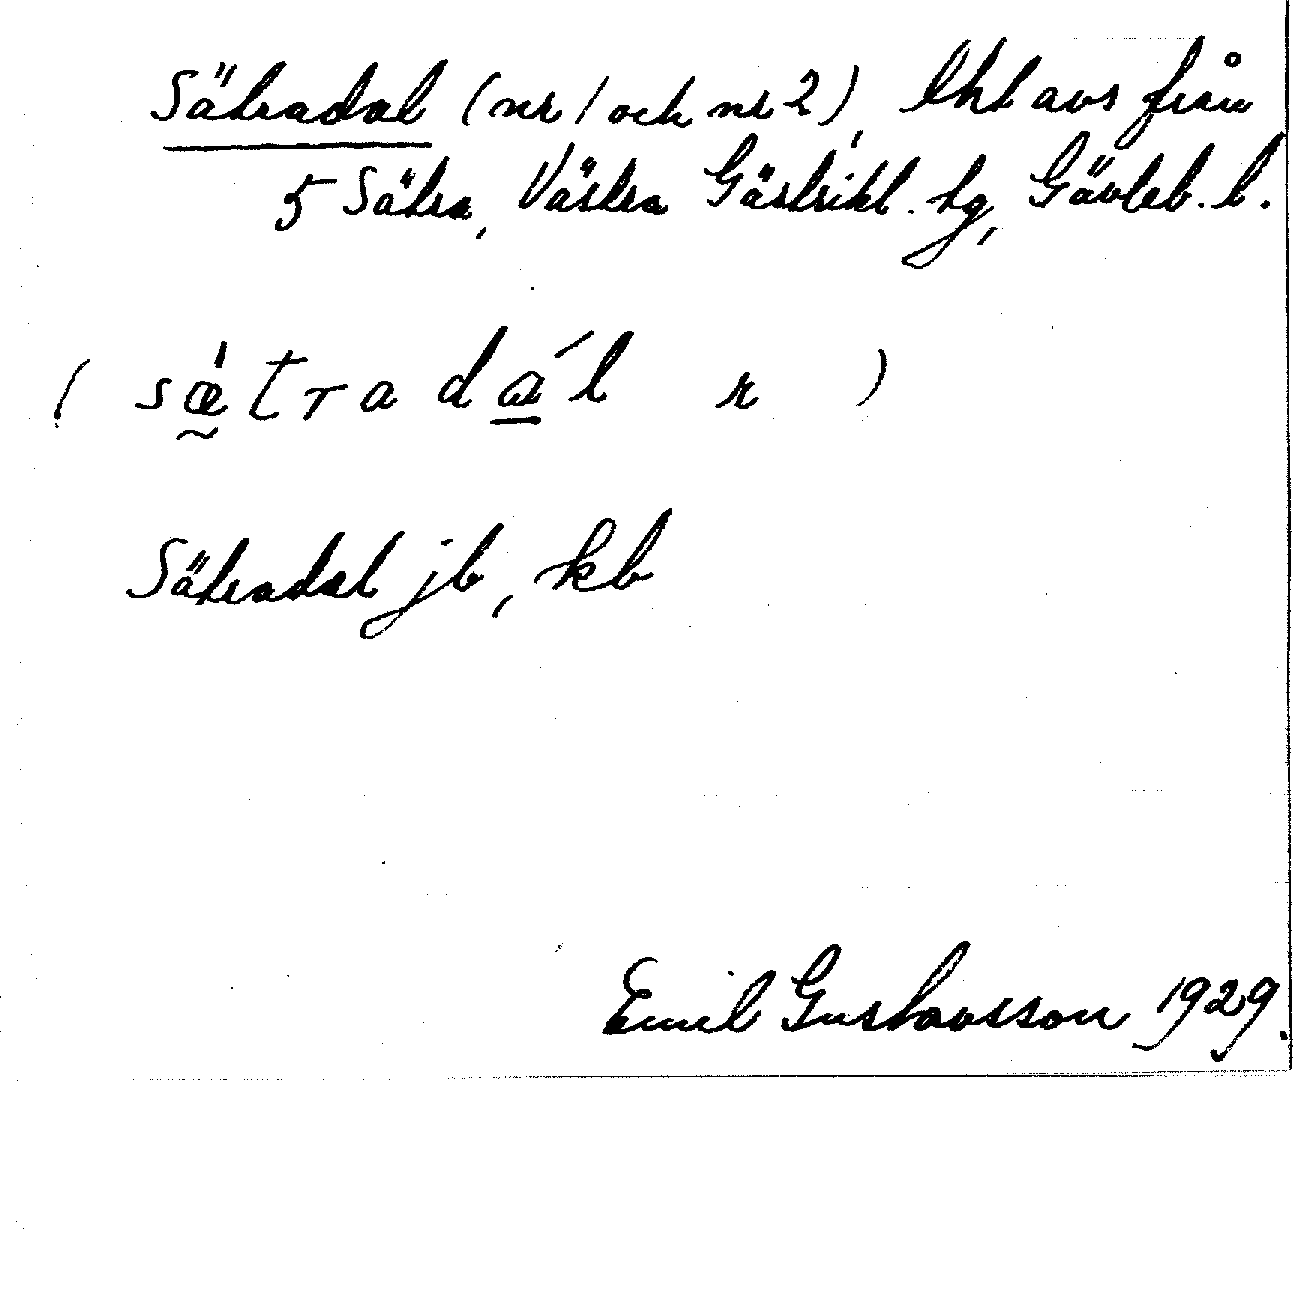 Sätradal (nr 1 och nr 2), lht avs från
5 Sätra, Västra Gästrikl. tg, Gävleb. l.
( sǽ̰trada̲ál r )
Sätradal jb, kb
Emil Gustavsson 1929.